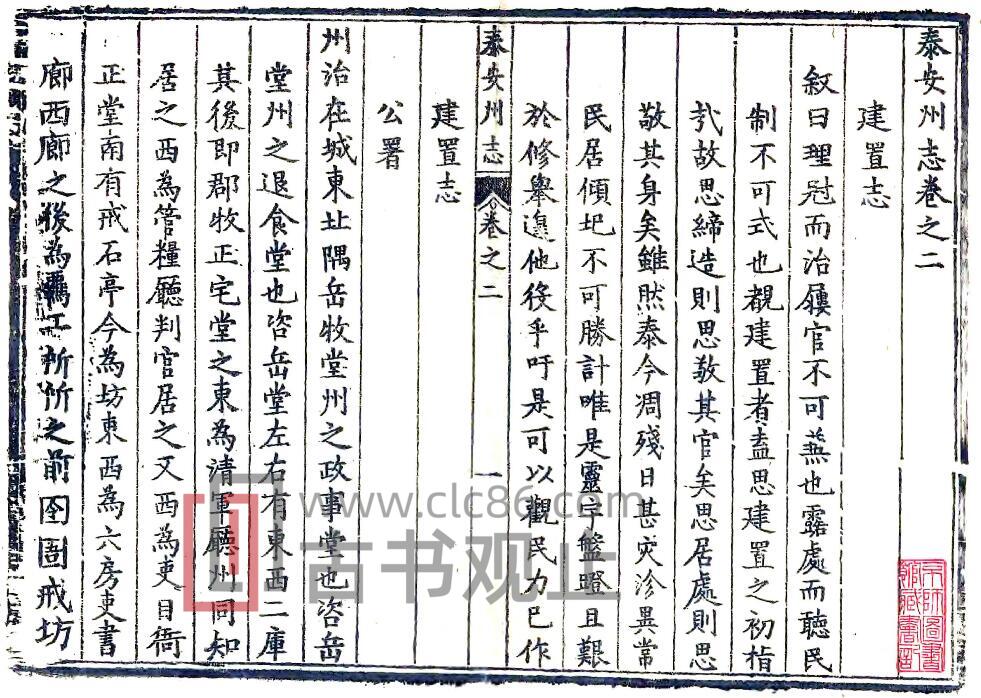 泰安州志卷之二
建置志
叙曰理冠而治屨官不可蕪也露處而聽民
制不可式也覩建置者盍思建置之初指
哉故思締造則思敬其官矣思居處則思
敬其身矣雖然泰今凋殘日甚灾沴異常
民居傾圯不可勝計唯是靈宇盤蹬且艱
於修舉遑他役乎吁是可以觀民力已作
建置志
泰安州志
卷之二
一
公署
州治在城東北隅岳牧堂州之政事堂也咨岳
堂州之退食堂也咨岳堂左右有東西二庫
其後即郡牧正宅堂之東為清軍廳州同知
居之西為管糧廳判官居之又西為吏目衙
正堂南有戒石亭今為坊東西為六房吏書
廊西廊之後為工所所之前囹圄戒坊
www.clc86.com
古书观止